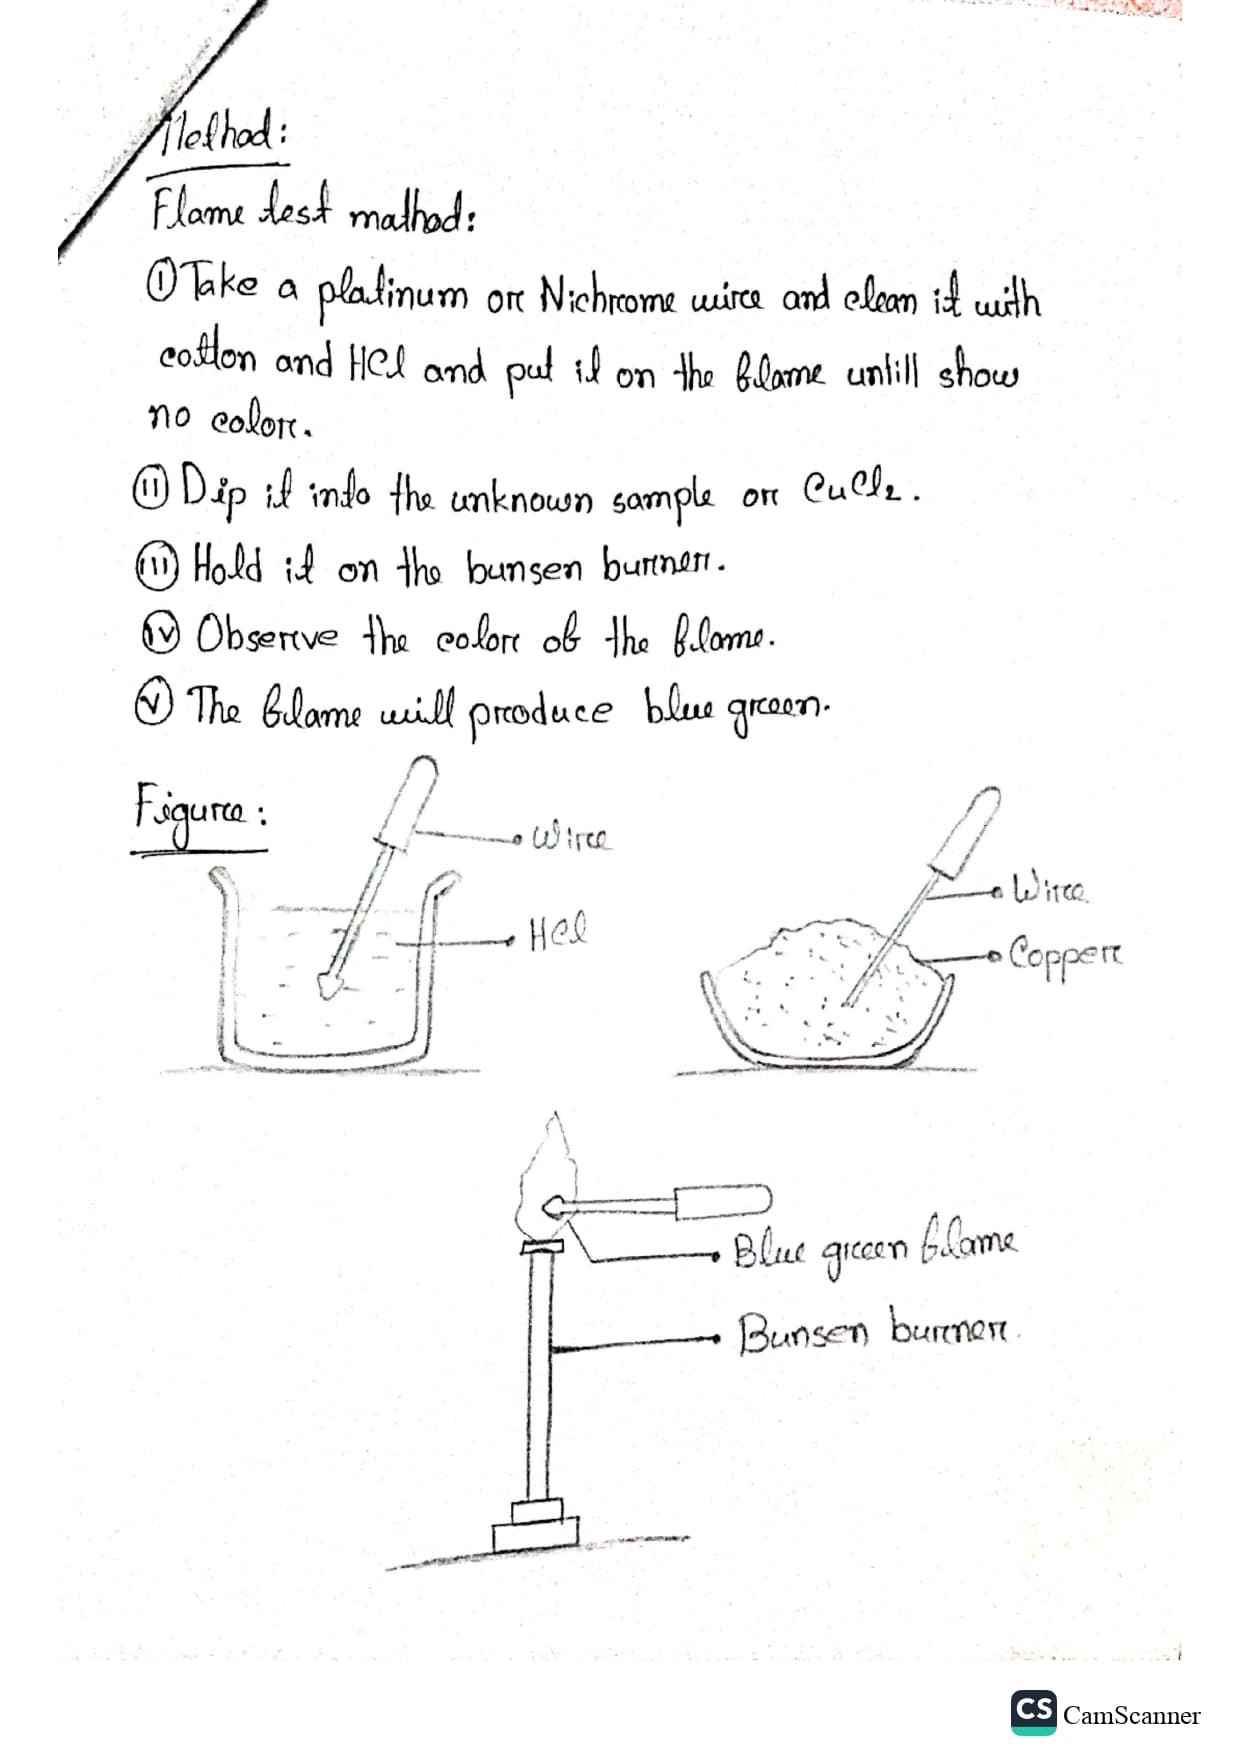 Method:
Flame test mathod:
(i) Take a platinum or Nichrome wire and clean it with
cotton and HCl and put it on the flame untill show
no color.
(ii) Dip it into the unknown sample or CuCl₂.
(iii) Hold it on the bunsen burner.
(iv) Observe the color of the flame.
(v) The flame will produce blue green.
Figure:
Wire
HCl
Wire
Copper
Blue green flame
Bunsen burner.
CS CamScanner